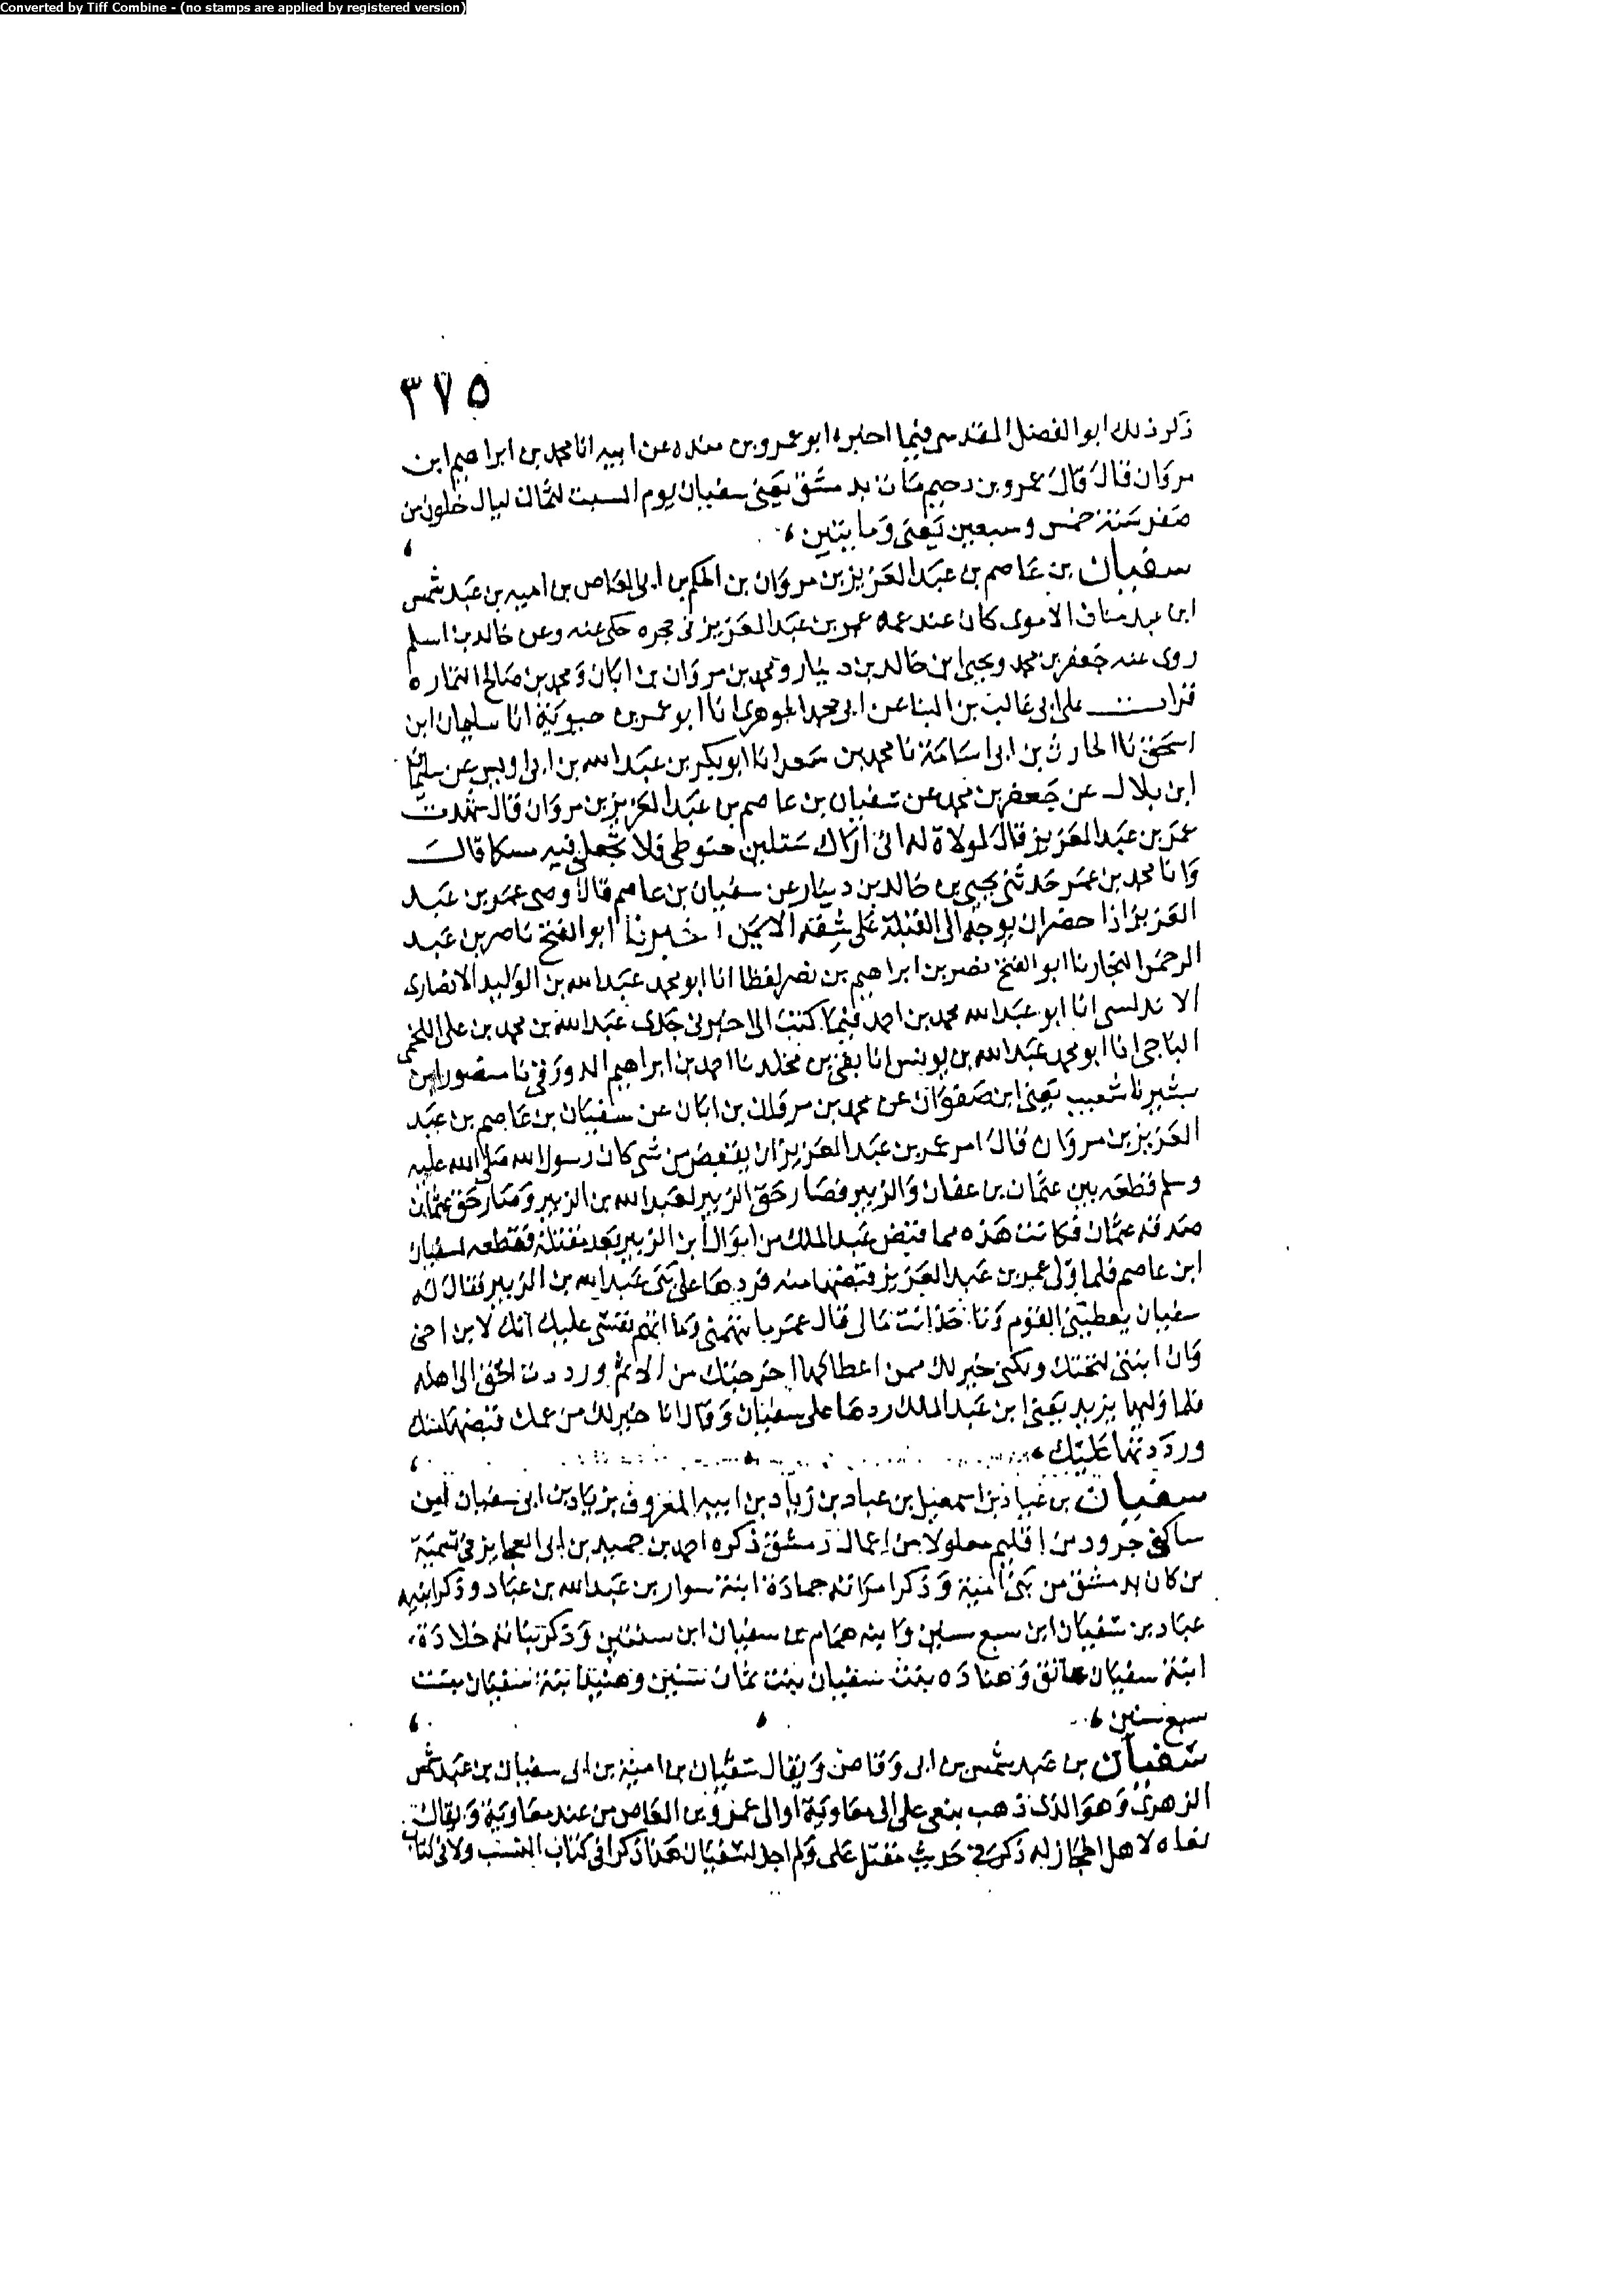 Converted by Tiff Combine - (no stamps are applied by registered version)
٣٧٥
ذكر ذلك ابو الفضل المقدسي فيما اخبره ابو عمرو بن منده عن ابيه انا محمد بن ابراهيم ابن
مروان قال قال عمرو بن دحيم مات بدمشق يعني سفيان يوم السبت لثمان ليال خلون من
صفر سنة خمس وسبعين يعني ومايتين
سفيان بن عاصم بن عبد العزيز بن مروان بن الحكم بن ابي العاص بن اميه بن عبد شمس
ابن عبد مناف الاموى كان عند عمه عمر بن عبد العزيز في حجره حكى عنه وعن خالد بن اسلم
روى عنه جعفر بن محمد ويحيى ابن خالد بن دينار ومحمد بن مروان بن ابان ومحمد بن صالح التماره
قرات على ابي غالب بن البنا عن ابي محمد الجوهري انا ابو عمر بن حيوية انا سليمان ابن
اسحق نا الحارث بن ابى اسامة نا محمد بن سعد انا ابو بكر بن عبد الله بن ابى اويس عن سليمان
ابن بلال عن جعفر بن محمد عن سفيان بن عاصم بن عبد العزيز بن مروان قال شهدت
عمر بن عبد العزيز قال لمولاة له اني اراك ستلين حنوطي فلا تجعلي فيه مسكا قال
وانا محمد بن عمر حدثني يحيى بن خالد بن دينار عن سفيان بن عاصم قال اوصى عمر بن عبد
العزيز اذا حضر ان يوجه الى القبلة على شقه الايمن اخبرنا ابو الفتح ناصر بن عبد
الرحمن النجار نا ابو الفتح نصر بن ابراهيم بن نصر لفظا انا ابو محمد عبد الله بن الوليد الانصارى
الاندلسى انا ابو عبد الله محمد بن احمد فيما كتب الى اخبرني جدى عبد الله بن محمد بن على اللخمى
الباجى انا ابو محمد عبد الله بن يونس انا بقي بن مخلد نا احمد بن ابراهيم الدورقي نا منصور ابن
بشير نا شعيب يعني ابن صفوان عن محمد بن مروان بن ابان عن سفيان بن عاصم بن عبد
العزيز بن مروان قال امر عمر بن عبد العزيز ان يقبض من شي كان رسول الله صلى الله عليه
وسلم قطعه بين عثمان بن عفان والزبير فصار حق الزبير لعبد الله بن الزبير وصار حق عثمان
صدقة عثمان فكانت هذه مما قبض عبد الملك من اموال ابن الزبير بعد مقتله فقطعه لسفيان
ابن عاصم فلما ولى عمر بن عبد العزيز قبضها منه فردها على بني عبد الله بن الزبير فقال له
سفيان يعطيني القوم وتاخذ انت مالى قال عمر ما تتهمني وما اتهم نفسي عليك انك لابن اخى
وان ابنتي لتحتك ولكني خير لك ممن اعطاكها اخرجتك من الاثم ورددت الحق الى اهله
فلما وليها يزيد يعني ابن عبد الملك ردها على سفيان وقال انا خير لك من عمك قبضها منك
ورددتها عليك
سفيان بن عباد بن اسمعيل بن عباد بن زياد بن ابيه المعروف بزياد بن ابى سفيان من
ساكني جرود من اقليم معلولا من اعمال دمشق ذكره احمد بن حميد بن ابى العجايز في تسمية
من كان بدمشق من بني امية وذكر امراته حمادة ابنة سوار بن عبد الله بن عباد وذكر ابنيه
عباد بن سفيان ابن سبع سنين وابنه همام بن سفيان ابن سنتين وذكر بناته خلادة
ابنة سفيان عاتق وهناده بنت سفيان بنت ثمان سنين وهنيد ابنة سفيان بنت
سبع سنين
سفيان بن عبد شمس بن ابى وقاص ويقال سفيان بن امية بن ابى سفيان بن عبد شمس
الزهرى وهو الذى ذهب بنعي على الى معاوية او الى عمرو بن العاص من عند معاوية ويقال
نعاه لاهل الحجاز له ذكر في حديث مقتل على ولم اجد لسفيان هذا ذكرا في كتاب النسب ولا في كتاب